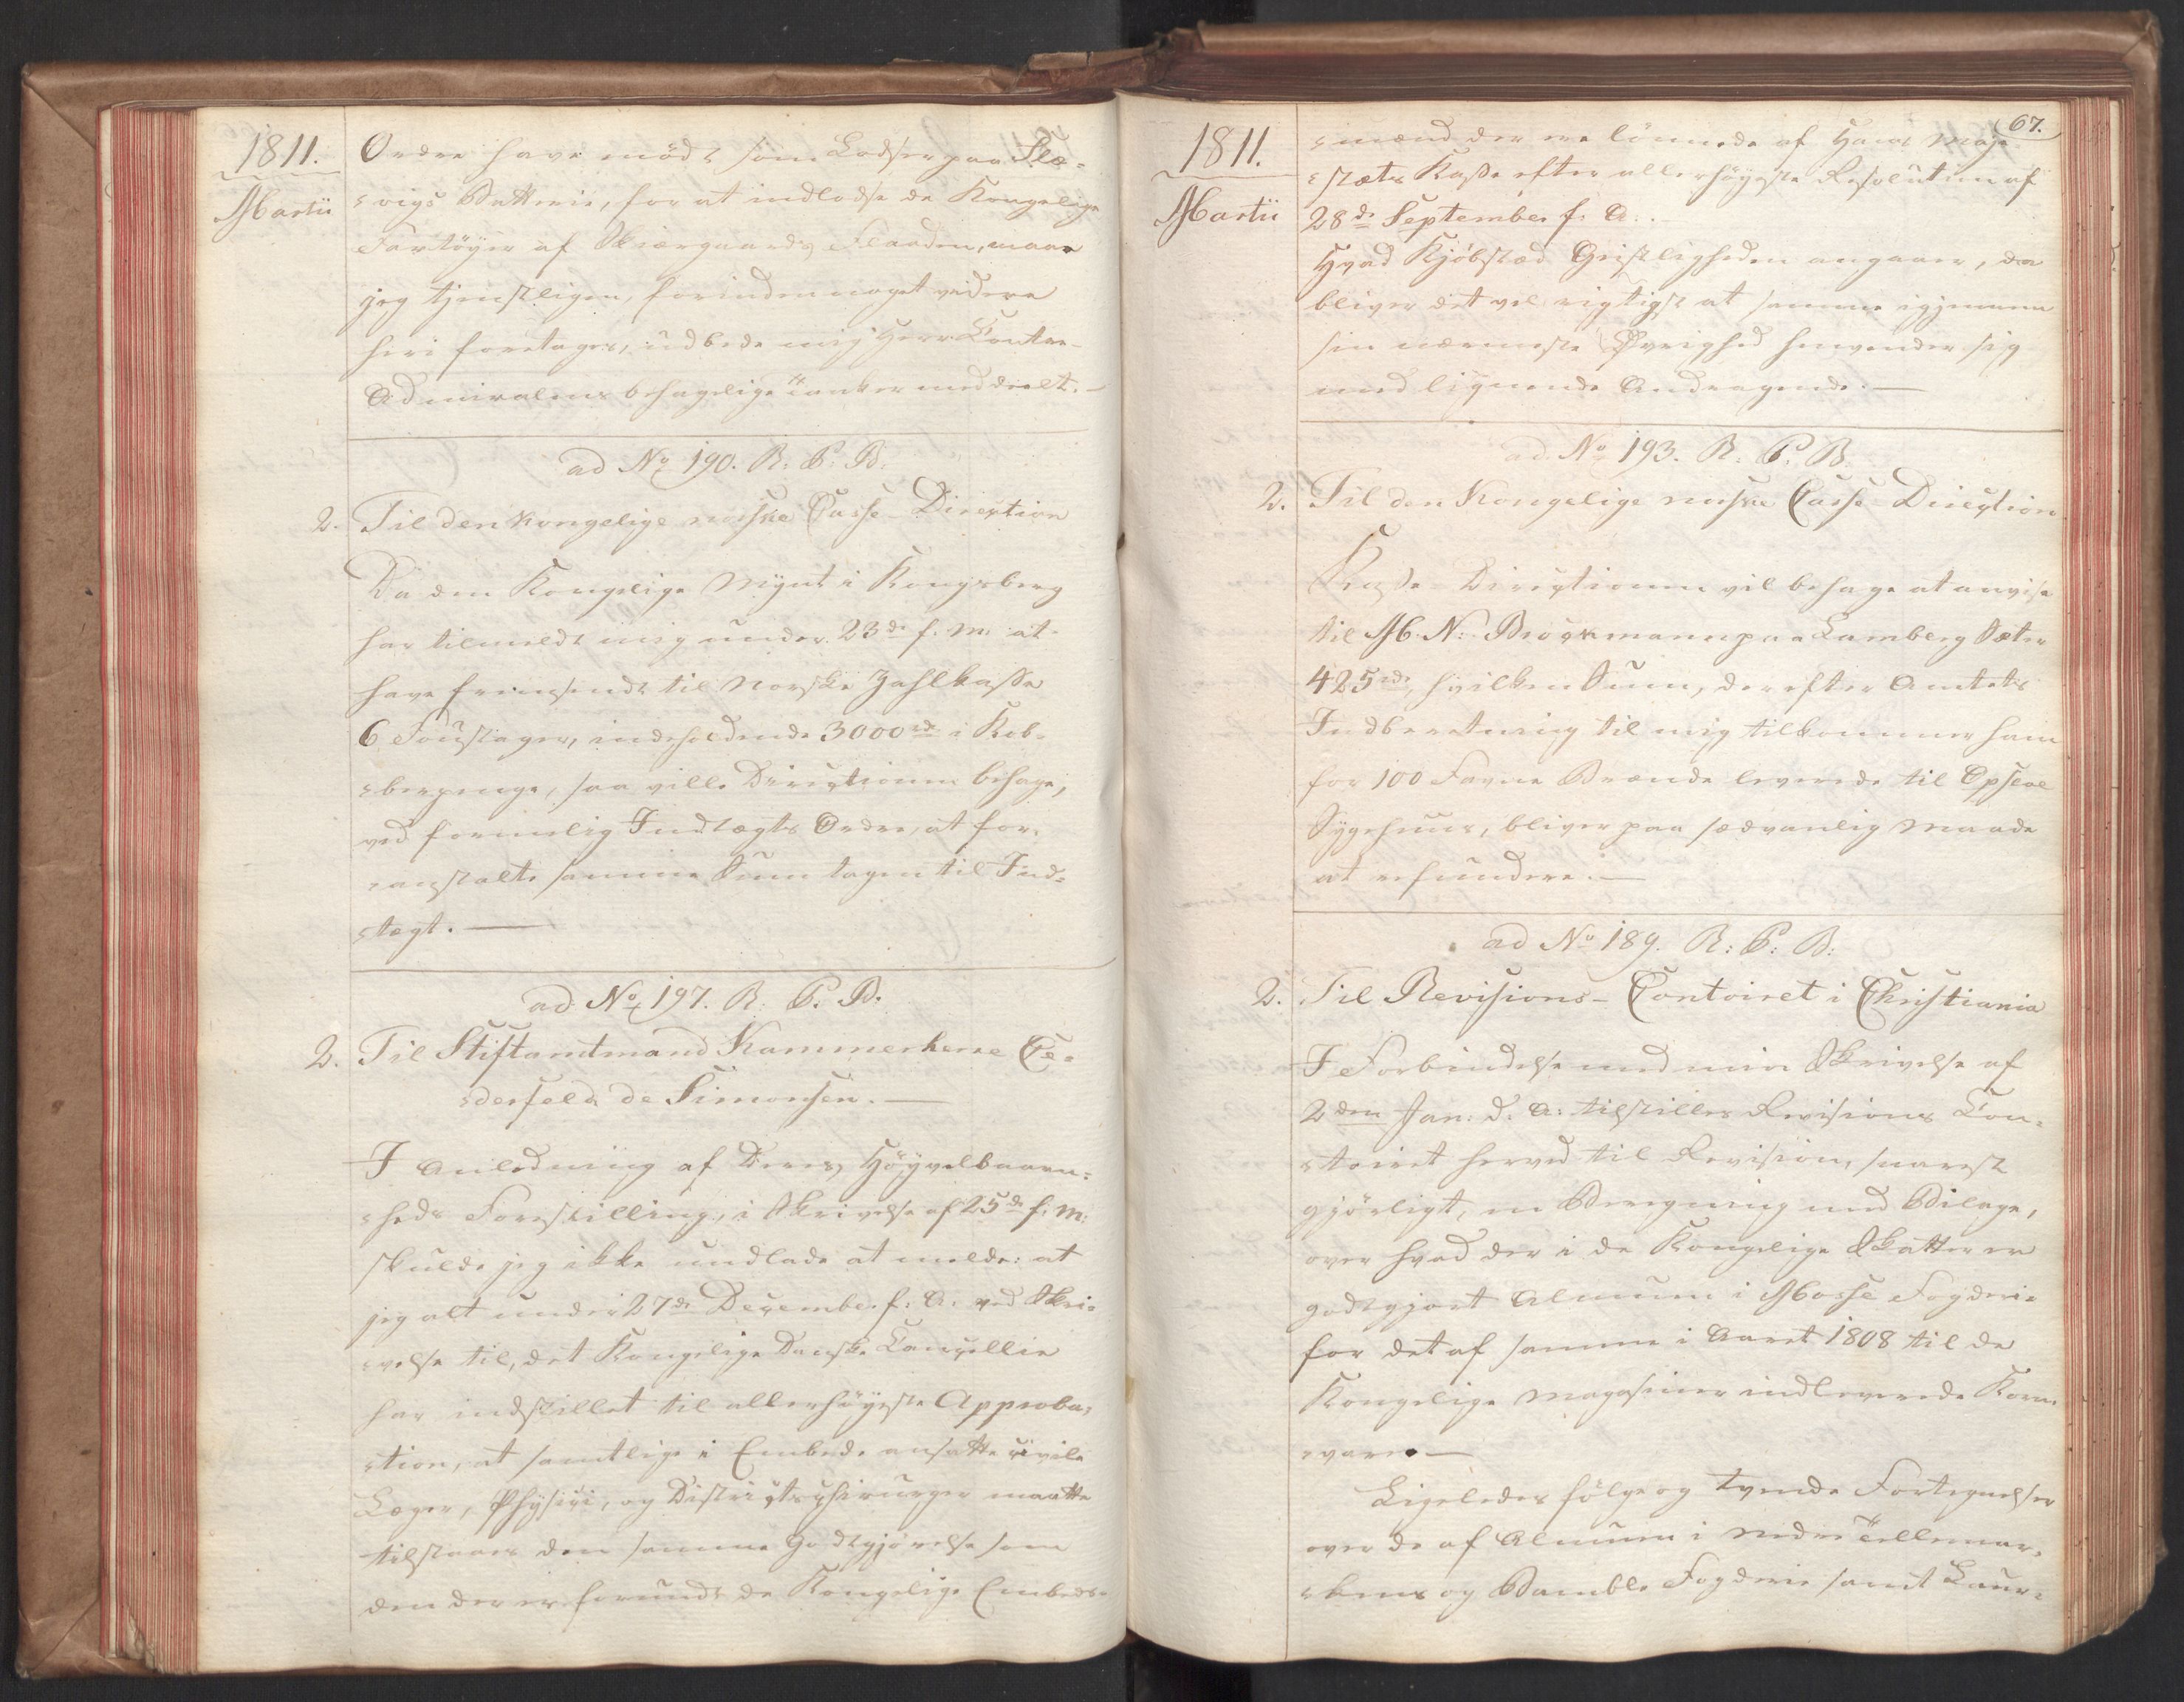 1811.
Martii
Ordre have mödt som Lodser paa Slæ-
vigs Batterie, for at indlodse de Kongelige
Fartöyer af Skiærgaards Flaaden, maae
jeg tjenstligen, forinden noget videre
heri foretages, udbede mig Herr Contre-
Admiralens behagelige Tanker meddeelt. —
ad No 190. R: P: B:
2. Til den kongelige norske Casse-Direction
Da den Kongelige Mynt i Kongsberg
har tilmeldt mig under 23de f. M. at
have fremsendt til Norske Zahlkasse
6 Foustager, indeholdende 3000 rd i Kob-
berpenge, saa ville Directionen behage,
ved formelig Indtægts Ordre, at for-
anstalte samme Sum tagen til Ind-
tægt. —
ad No 197. R. P. B.
2. Til Stiftamtmand Kammerherre Ce-
derfeld de Simonsen. —
I Anledning af Deres Höyvelbaaren-
heds Forestilling, i Skrivelse af 25de f. M.
skulde jeg ikke undlade at melde: at
jeg alt under 27de December f: A: ved Skri-
velse til, det Kongelige Danske Cancellie
har indstillet til allerhöyeste Approba-
tion, at samtlige i Embede ansatte civile
Læger, Physici, og Districtschirurger maatte
tilstaaes den samme Godtgjörelse som
den der er forundt de Kongelige Embeds-
67.
1811.
Martii
mænd der ere lönnede af Hans Maje-
stæts Kasse efter allerhöyeste Resolution af
28de September f: A: .
Hvad Kjöbstæd Geistligheden angaaer, da
bliver det vel rigtigst at samme igjennem
sin nærmeste Øvrighed henvender sig
med lignende Andragende. —
ad No 193. R. P. B.
2. Til den Kongelige norske Casse Direction
Kasse Directionen vil behage at anvise
til M. N: Brockmann paa Lamberg Sæter
425 rd, hvilken Sum, der efter Amtets
Indberetning til mig tilkommer ham
for 100 Favne Brænde leverede til Opsloe
Sygehuus, bliver paa sædvanlig Maade
at refundere. —
ad No 189. R: P: B:
2. Til Revisions-Contoiret i Christiania
I Forbindelse med min Skrivelse af
2den Jan: d. A: tilstilles Revisions Con-
toiret herved til Revision, snarest
gjörligt, en Beregning med Bilage,
over hvad der i de Kongelige Skatter er
godtgjort Almuen i Mosse Fogderie
for det af samme i Aaret 1808 til de
Kongelige Magasiner indleverede Korn-
vare. —
Ligeledes fölge og tvende Fortegnelser
over de af Almuen i Nedre Tellemar-
kens og Bamble Fogderie samt Laur-